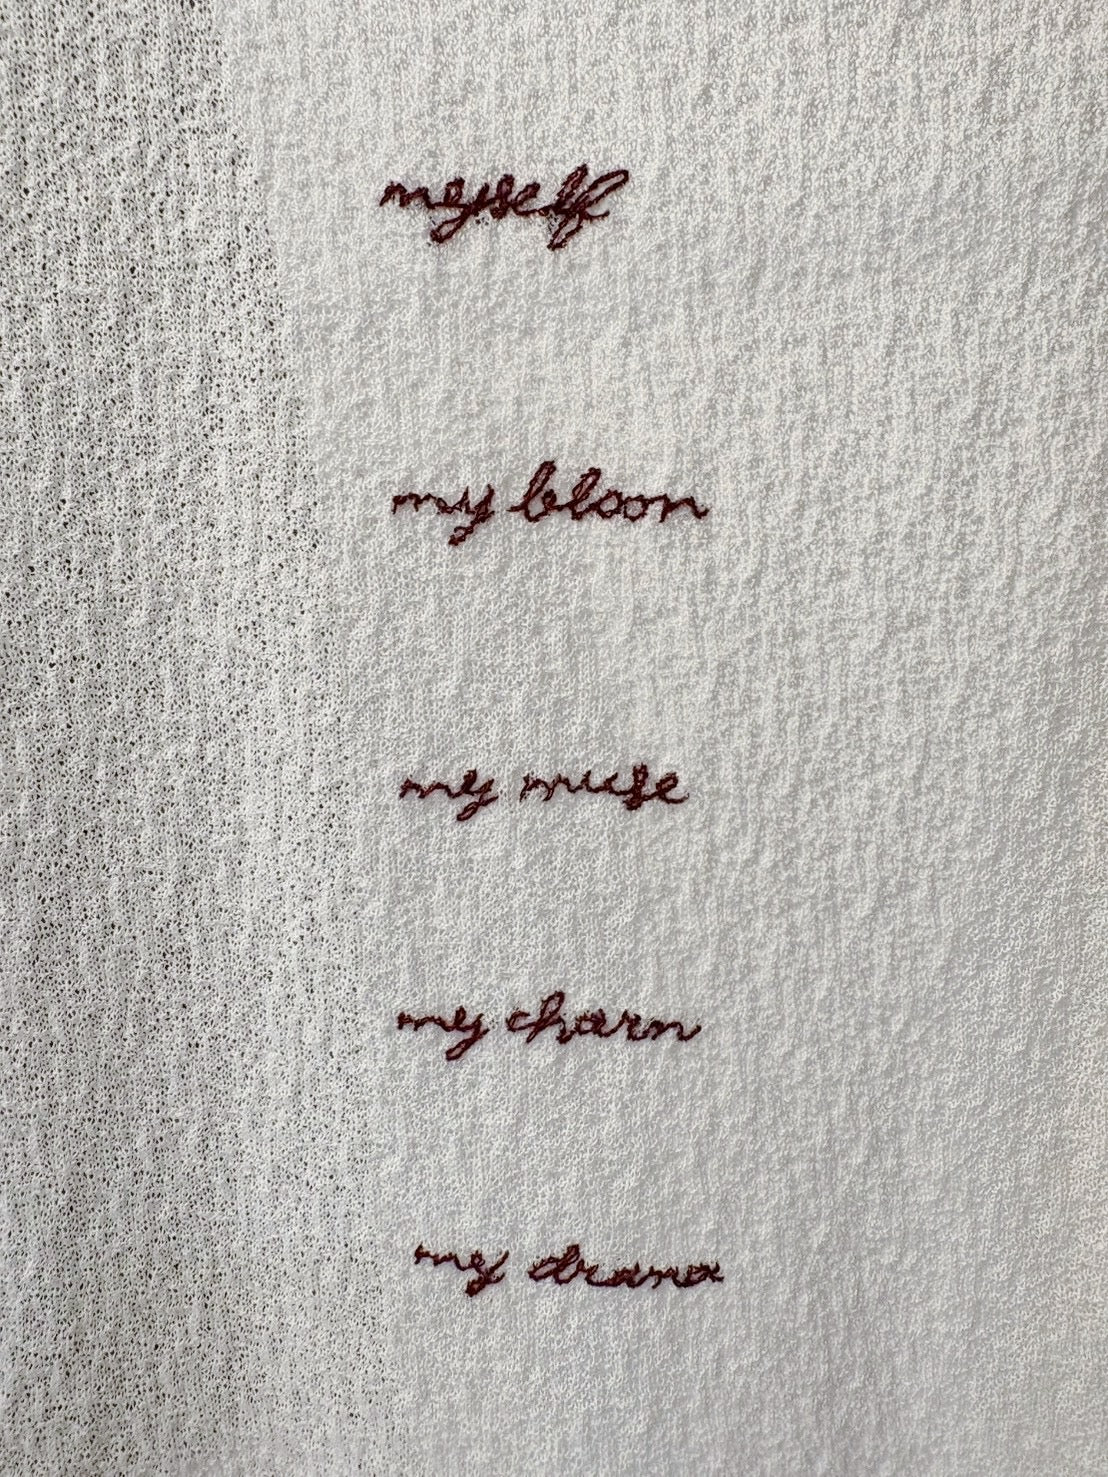 myself
my bloon
my muse
my charn
my drama